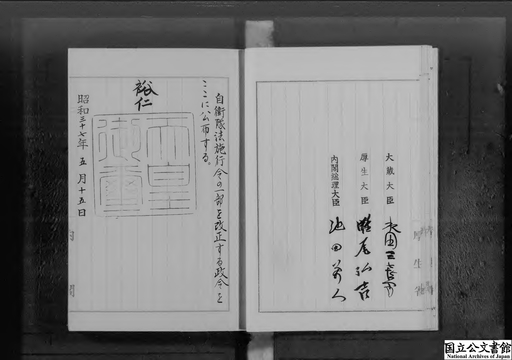 大蔵大臣 水田三喜男
厚生大臣 灘尾弘吉
内閣総理大臣 池田勇人
自衛隊法施行令の一部を改正する政令を
ここに公布する。
裕仁
天皇
御璽
昭和三十七年 五月十五日
国立公文書館
National Archives of Japan